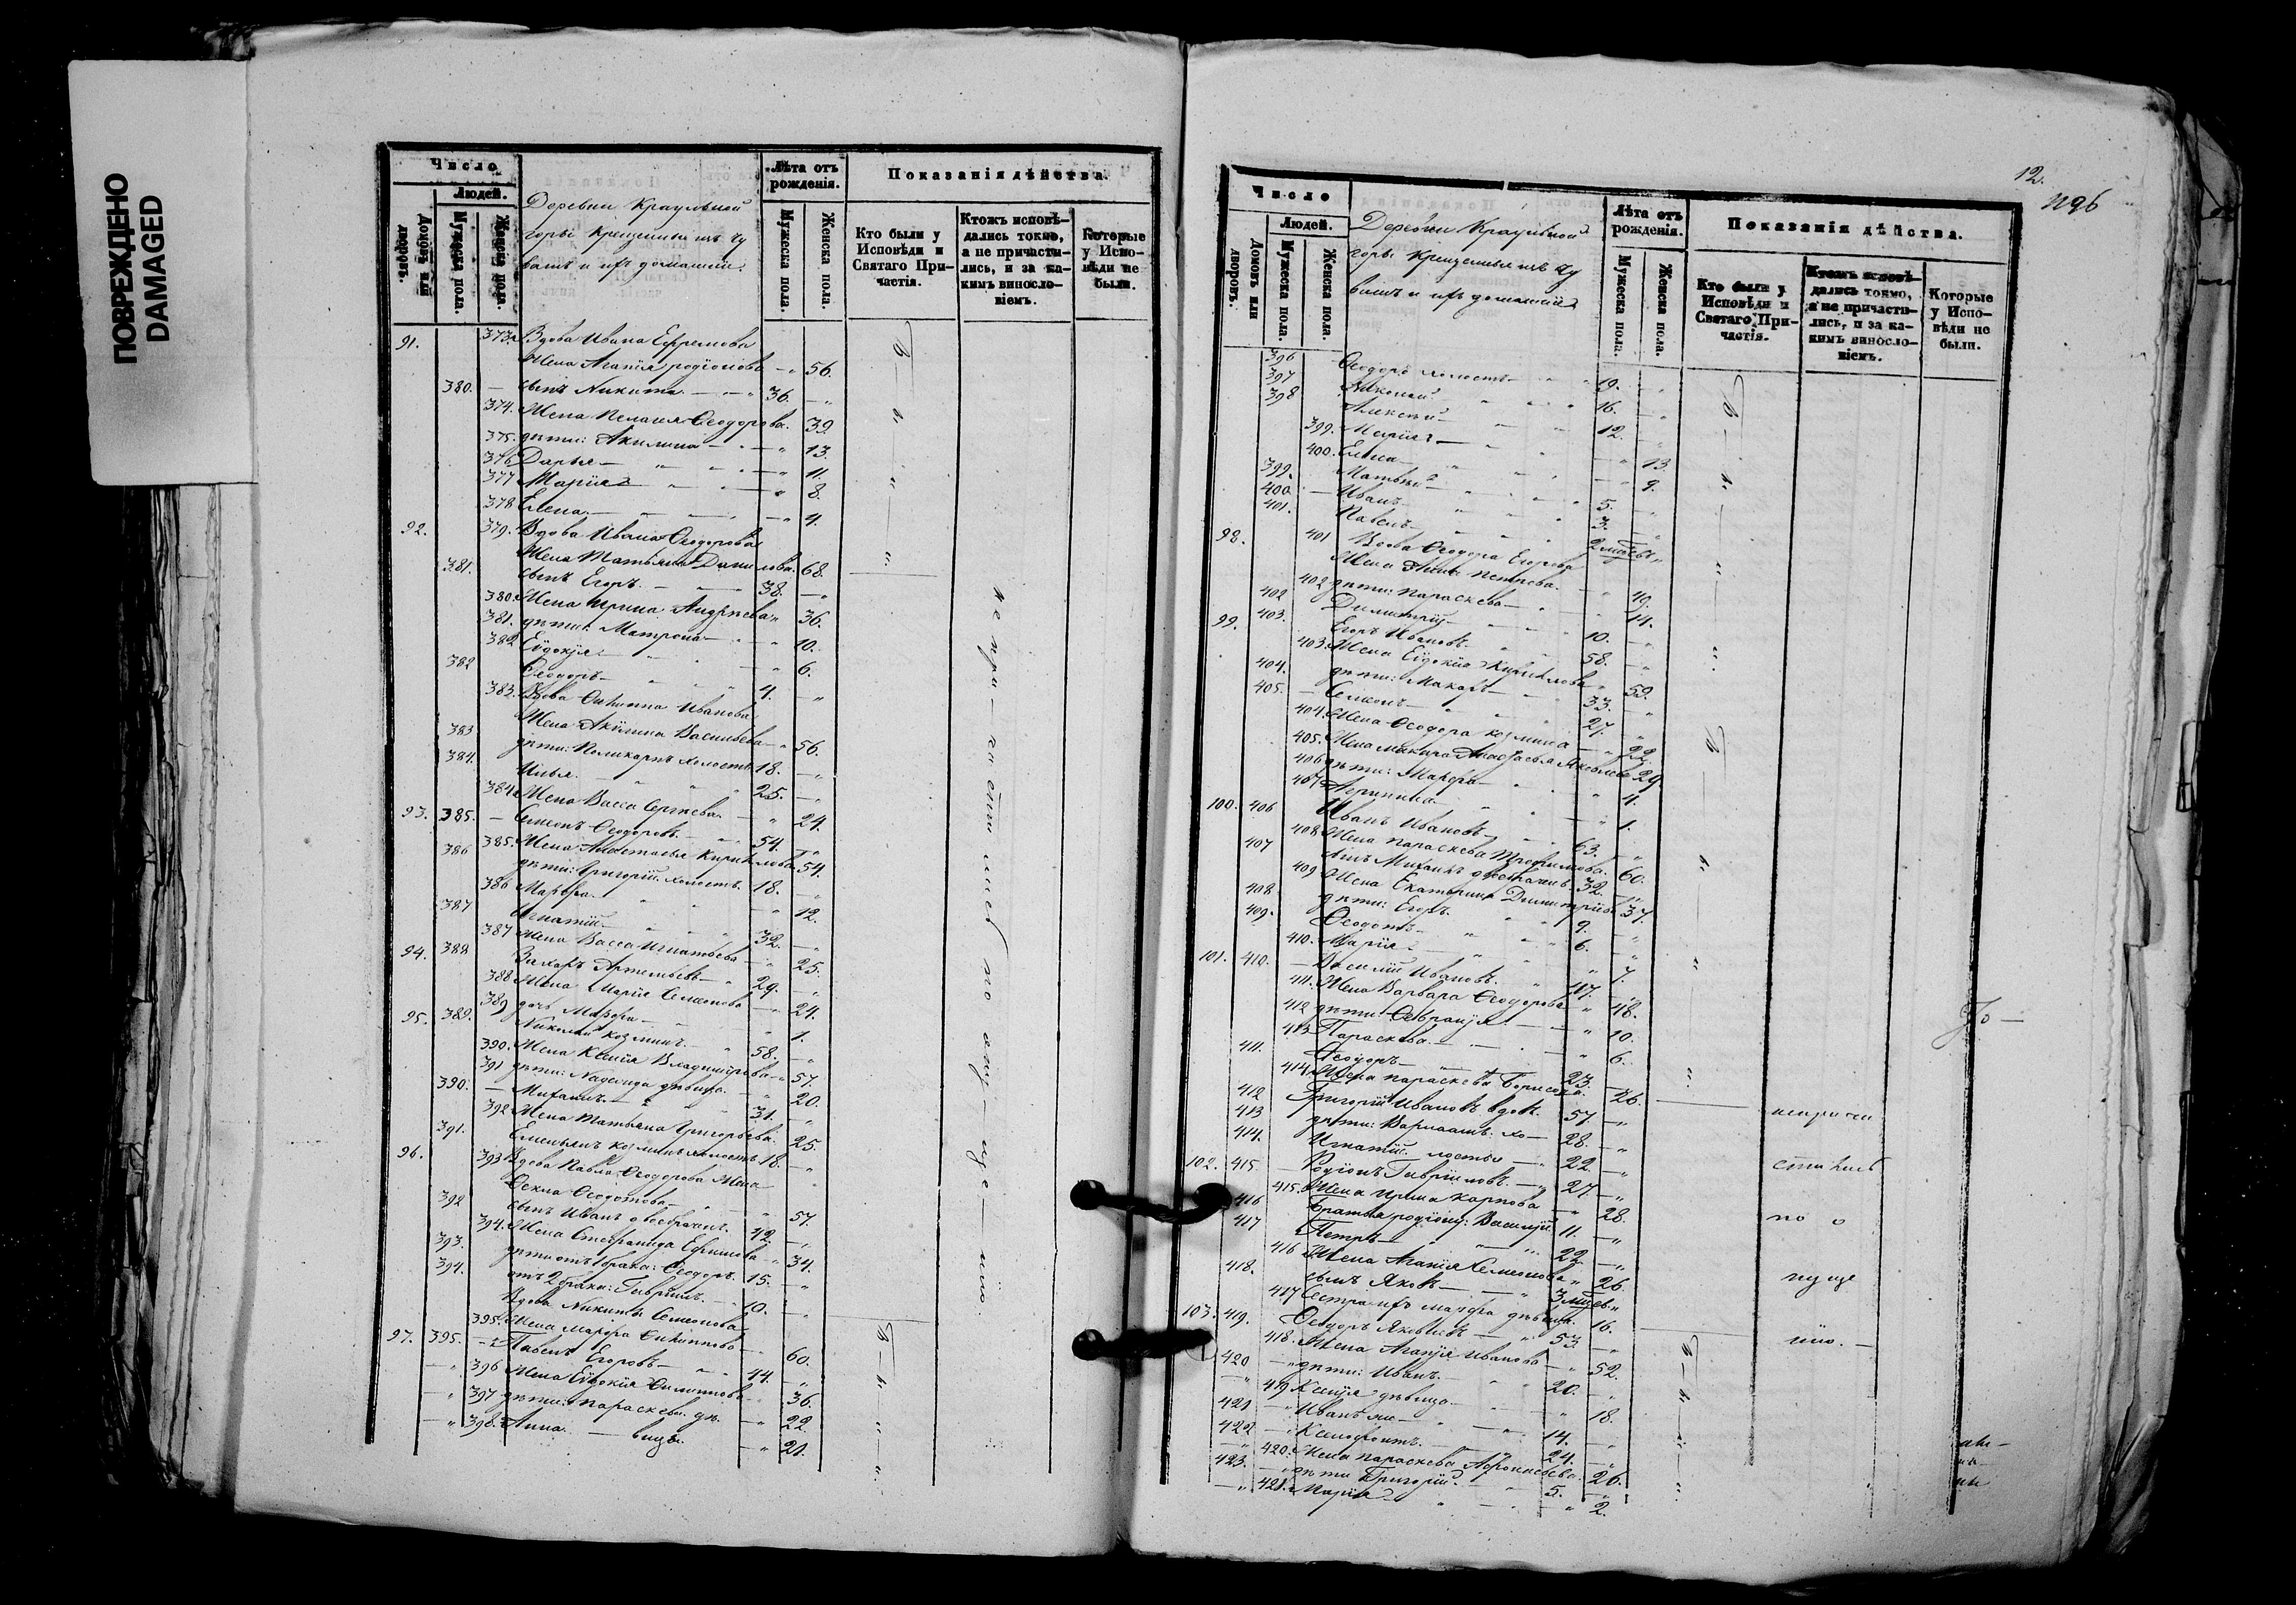 ПОВРЕЖДЕНО
DAMAGED
Число
Людей.
Домовъ или дворовъ.
Мужеска пола.
Женска пола.
Деревни Караульной
горы крещеные изъ чу
вашъ и ихъ домашніи.
Лѣта отъ рожденія.
Мужеска пола.
Женска пола.
Показанія дѣйства.
Кто были у Исповѣди и Святаго Причастія.
Ктожъ исповѣдались токмо, а не причастились, и за какимъ винословіемъ.
Которые у Исповѣди не были.
91. 373. Вдова Ивана Ефремова
Жена Агапія Родіонова — " 56.
380. — сынъ Никита — 36. — "
374. Жена Пелагея Ѳеодорова. 39.
375. дѣти: Акилина — " 13.
376 Дарья — " 11.
377 Марія — " 8.
378 Елена — " 4.
92. 379. Вдова Ивана Ѳеодорова
Жена Татьяна Данилова. 68.
381. сынъ Егоръ. — 38. — "
380. Жена Ирина Андреева " 36.
381. дѣти: Матрона — " 10.
382 Евдокія — " 6.
382 Ѳеодоръ — 4. — "
383. Вдова Филиппа Иванова
Жена Акилина Васильева — " 56.
383 дѣти: Поликарпъ холостъ 18. — "
384. Илья. 25. — "
384. Жена Васса Сергѣева — " 24.
93. 385. — Семенъ Ѳеодоровъ. — 54. — "
385. Жена Анастасья Кирилова 54.
386 дѣти: Григорій холостъ. 18. "
386 Марѳа. — " 12.
387 Игнатій. 32. — "
387 Жена Васса Игнатьева — " 25.
94. 388 Захаръ Артемьевъ — 29. — "
388 Жена Марія Семенова — " 24.
389 дочь Марѳа — " 1.
95. 389. Николай Козминъ. — 58. — "
390. Жена Ксенія Владимірова — " 57.
391 дѣти: Надежда дѣвица. — " 20.
390. — Михаилъ. — 31. "
392 Жена Татьяна Григорьева. 25.
391. Емельянъ Козминъ холостъ 18. — "
96. 393 Вдова Павла Ѳеодорова Жена
Ѳекла Ѳеодотова — " 57.
392 сынъ Иванъ двоебрачн. 42. — "
394. Жена Степанида Ефимова — " 34.
393. дѣти отъ 1 брака: Ѳеодоръ. 15. — "
394. отъ 2 брака: Гавріилъ. — 10. — "
Вдова Никиты Семенова
395. Жена Марѳа Филиппова — " 60.
97. 395. — Павелъ Егоровъ — 44. — "
" 396 Жена Евдокія Филиппова — " 36.
" 397 дѣти: Параскева дѣ — " 22.
" 398. Анна. — вицы. — " 21.
не при-частились по опу-ще-нію.
12.
1296
Число
Людей.
Домовъ или дворовъ.
Мужеска пола.
Женска пола.
Деревни Караульной
горы крещеные изъ чу
вашъ и ихъ домашніи
Лѣта отъ рожденія.
Мужеска пола.
Женска пола.
Показанія дѣйства.
Кто были у Исповѣди и Святаго Причастія.
Ктожъ исповѣдались токмо, а не причастились, и за какимъ винословіемъ.
Которые у Исповѣди не были.
396 Ѳеодоръ холостъ — 19. "
397 Николай 16. "
398 Алексѣй 12. "
399. Марія — " 13.
400. Елена — " 9.
399. Матвѣй — 5. "
400. — Иванъ — 3. "
401. Павелъ — 2 мѣсяцъ "
98. 401 Вдова Ѳеодора Егорова
Жена Анна Петрова. — " 49.
402 дѣти: Параскева — " 14.
402 Димитрій — 10. "
99. 403. Егоръ Ивановъ. 58. — "
403. Жена Евдокія Кирилова " 59.
404. дѣти: Макаръ — 33. "
405. — Семенъ — 27. "
404. Жена Ѳеодора Козмина — " 22.
405. Жена Макара Анастасья Яковлева 29
406 дѣти: Марѳа — " 4.
407 Агрипина — " 1.
100. 406 Иванъ Ивановъ — 63. "
408 Жена Параскева Трофимова. 60.
407 сынъ Михаилъ двоебрачн. 32. "
409 Жена Екатерина Димитріева 37.
408. дѣти: Егоръ. 9. "
409. Ѳеодотъ — 6. "
410. Марія — " 7.
101. 410. — Василій Ивановъ. 47. "
411. Жена Варвара Ѳеодорова " 48.
412 дѣти: Февронія. — " 10.
413 Параскева. — " 6.
411. Ѳеодоръ — 23. —
414. Жена Параскева Борисова. 26.
412 Григорій Ивановъ вдов. 57. — "
413 дѣти: Варлаамъ: хо — 28. — "
414. Игнатій лостые — 22. — "
102. 415. — Родіонъ Гавриловъ. — 27. — "
415. Жена Ирина Карпова — " 28.
416 Братья Родіону: Василій 11. — "
417 Петръ — 22. — "
416 Жена Агапія Семенова " 26.
418. сынъ Яковъ — 3 мѣсяцъ "
417 сестра ихъ Марѳа дѣвица. 16.
103. 419. Ѳеодоръ Яковлевъ — 53. — "
418. Жена Агапія Иванова — " 52.
420 — дѣти: Иванъ. 20. "
" 419 Ксенія дѣвица — " 18.
421 — Иванъ — 14. "
422 — Ксенофонтъ. — 24. "
" 420. Жена Параскева Афонасьева. 26.
423. — дѣти Григорій. — 5. "
" 421. Марія — " 2.
непричастились по о пуще нію. —